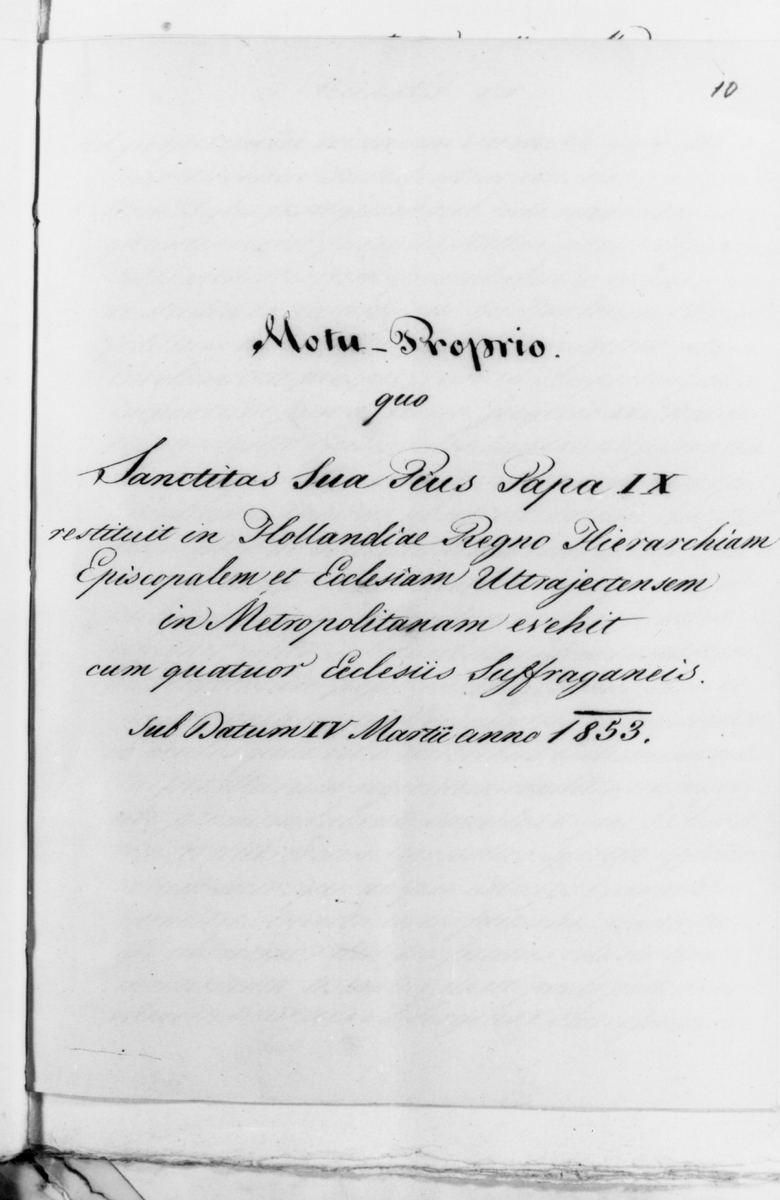 10
Motu-Proprio.
quo
Sanctitas Sua Pius Papa IX
restituit in Hollandiae Regno Hierarchiam
Episcopalem et Ecclesiam Ultrajectensem
in Metropolitanam evehit
cum quatuor Ecclesiis Suffraganeis.
sub Datum IV Martii anno 1853.